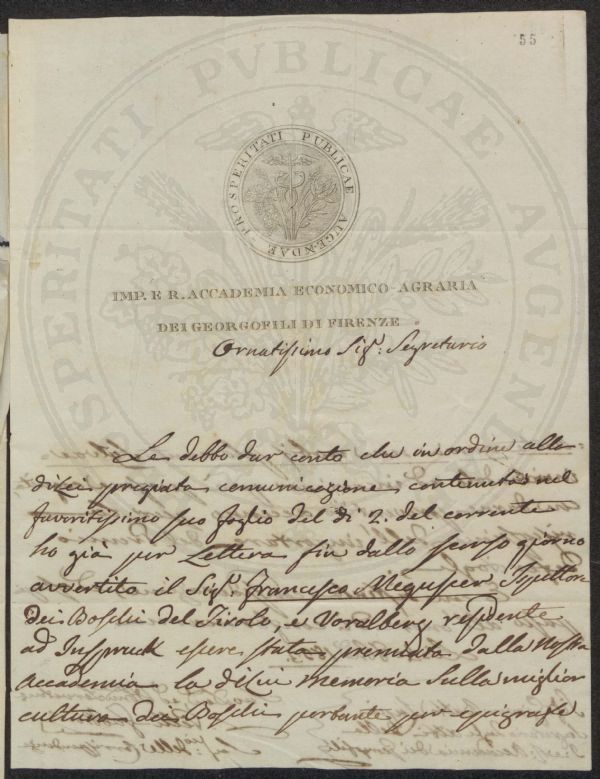 55
PROSPERITATI PUBLICAE AUGENDAE
IMP. E R. ACCADEMIA ECONOMICO-AGRARIA
DEI GEORGOFILI DI FIRENZE
Ornatissimo Sigr. Segretario
Le debbo dar conto che in ordine alla
di Lei pregiata comunicazione contenuta nel
favoritissimo suo foglio del di 2. del corrente
ho già per Lettera fin dallo scorso giorno
avvertito il Sigr. Francesco Meguscer Ispettore
dei Boschi del Tirolo, e Voralberg residente
ad Inspruck essere stata premiata dalla Nostra
Accademia la di Lui memoria sulla miglior
cultura dei Boschi portante per epigrafe